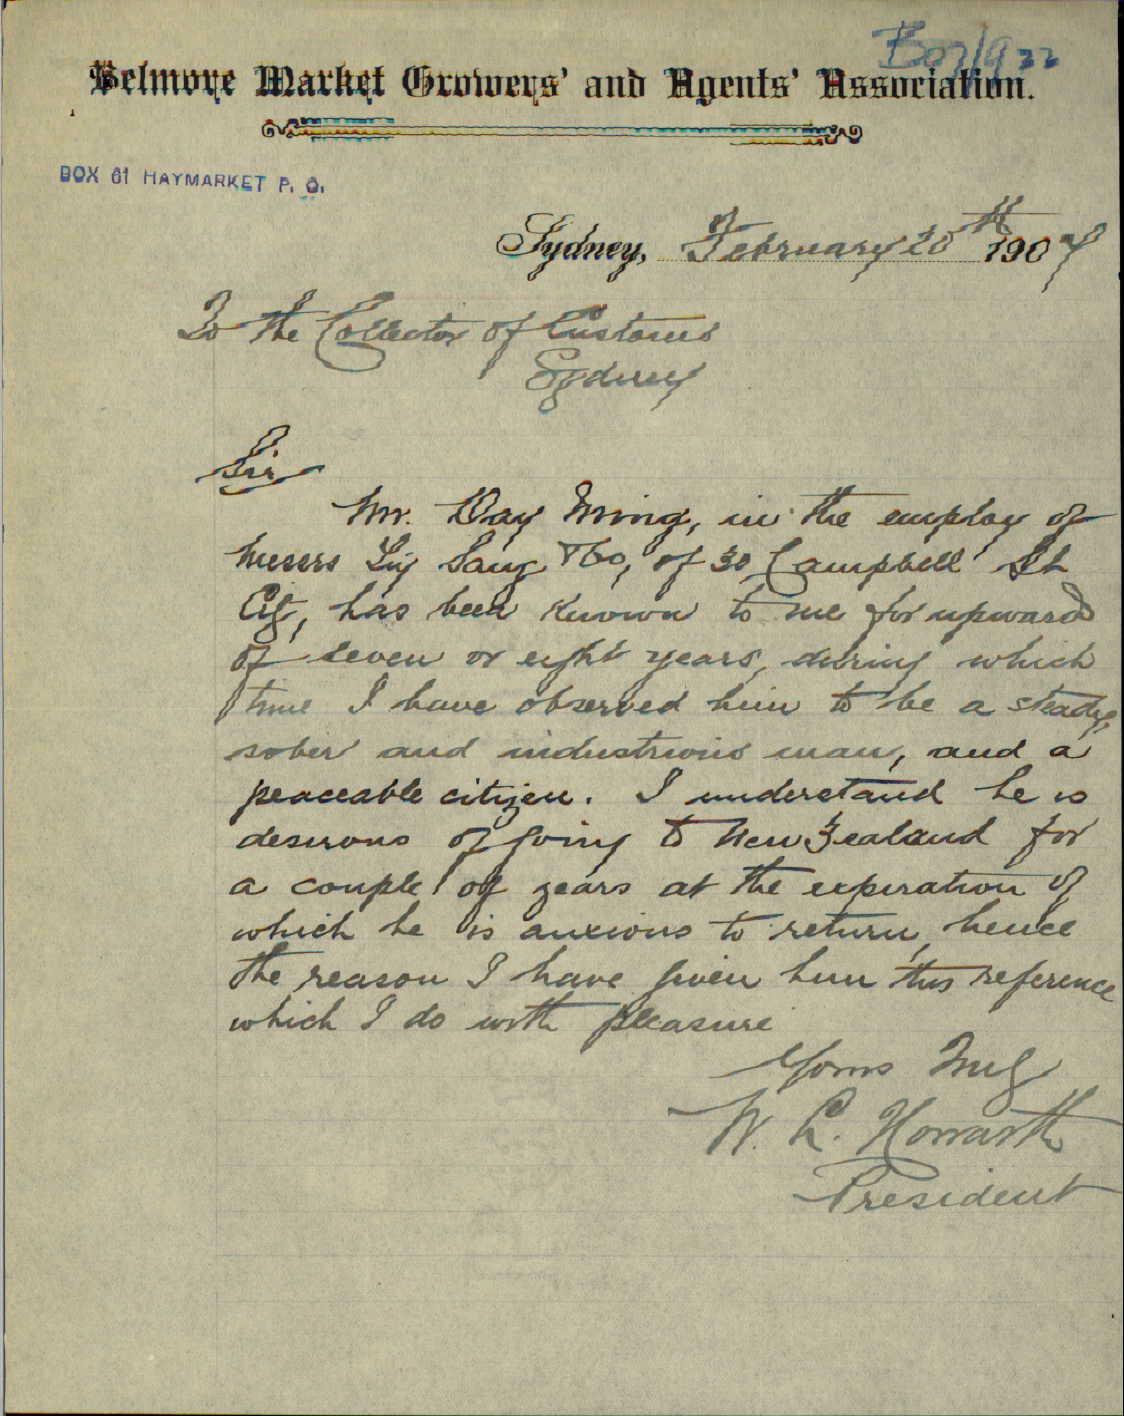 Belmore Market Growers' and Agents' Association.
BOX 61 HAYMARKET P. O.
Sydney, February 20th 1907
To the Collector of Customs
Sydney
Sir
Mr. Day Ming, in the employ of
Messrs Sang & Co, of 30 Campbell St
City, has been known to me for upward
of seven or eight years, during which
time I have observed him to be a steady,
sober and industrious man, and a
peaceable citizen. I understand he is
desirous of going to New Zealand for
a couple of years at the expiration of
which he is anxious to return, hence
the reason I have given him this reference
which I do with pleasure
Yours truly
W. L. Howarth
President